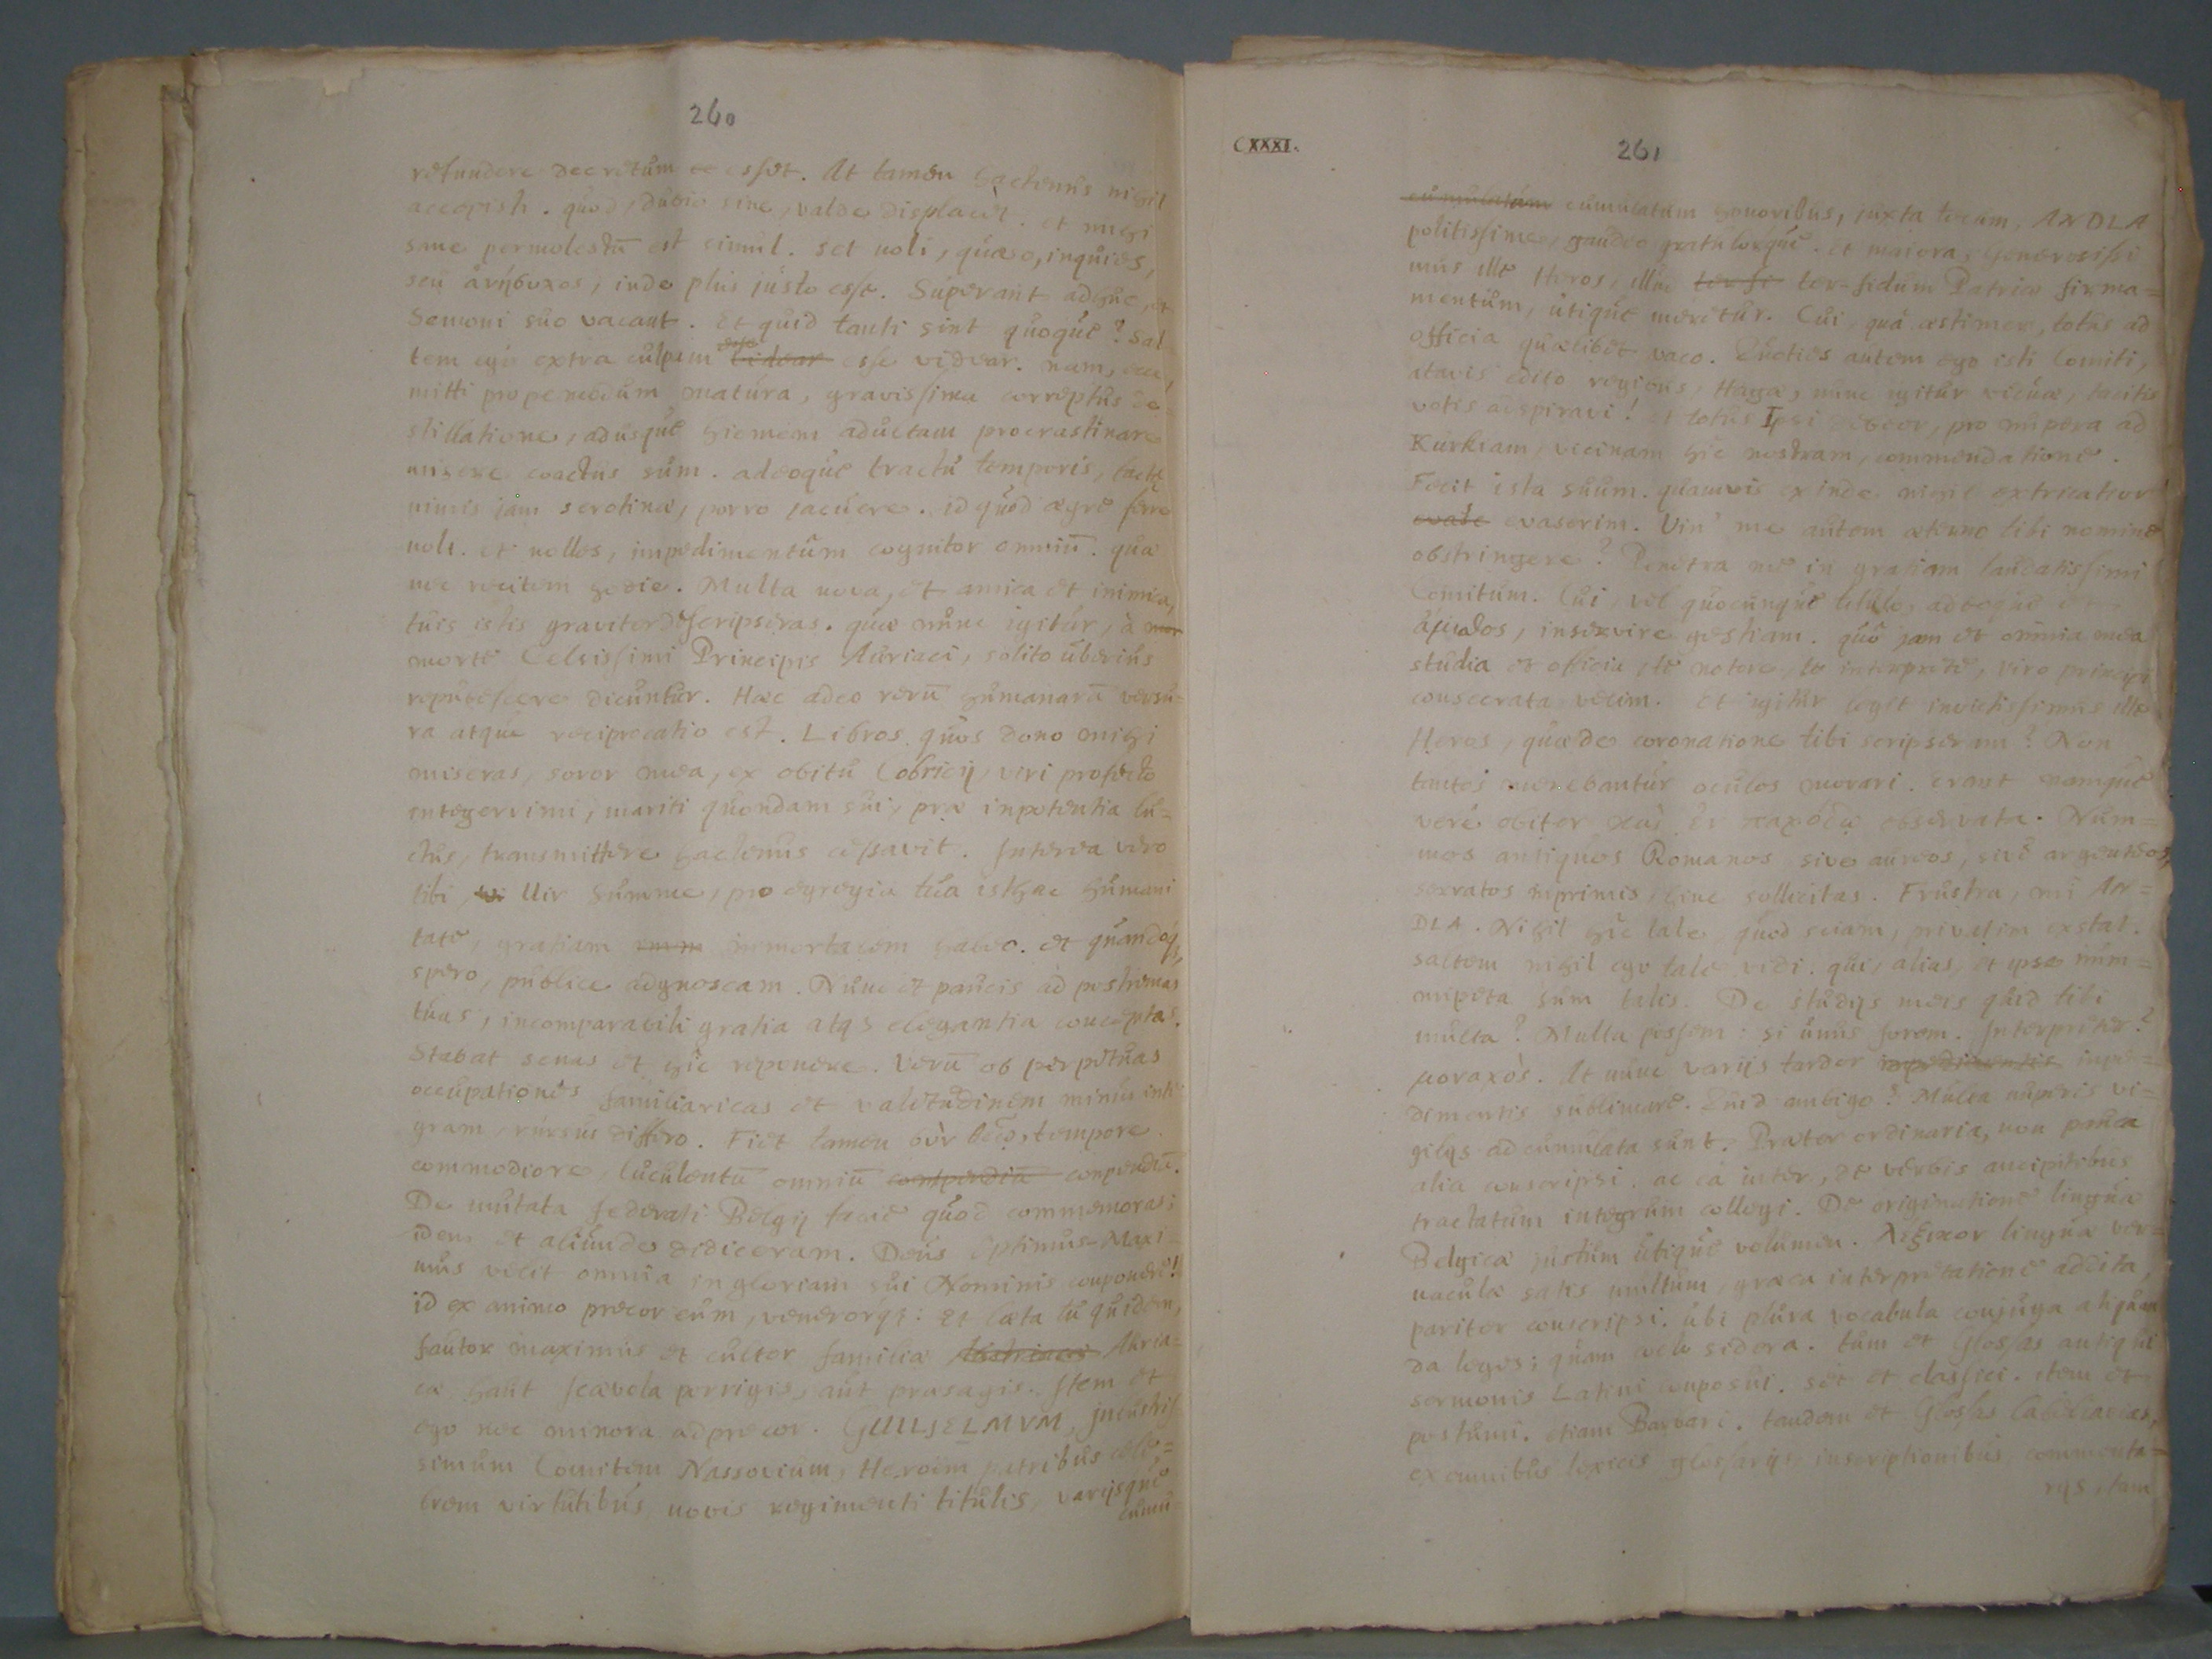 260
refundere decretum esset. At tamen hactenus nihil
accepisti. quod, dubio sine, valde displacet. et mihi
sane permolestū est simul. Set noli, quæso, inquies,
seu ἀνήκοος, inde plus justo esse. Superant adhuc, et
Semoni suo vacant. Et quid tanti sint quoque? Sal
tem ego extra culpam videar esse videar. nam,
mitti propemodum matura, gravissima correptus de
stillatione, adusque hiemem adultam procrastinare
misere coactus sum. adeoque tractu temporis,
nimis jam serotina, porro jacuere. id quod ægre ferre
noli. et nolles, impedimentûm cognitor omniū. quæ
ne recitem hodie. Multa nova, et amica et inimica,
tuis istis graviter descripseras. quæ nunc igitur, à mor
morte Celsissimi Principis Auriaci, solito uberius
repubescere dicuntur. Hæc adeo rerū humanarū versu-
ra atque reciprocatio est. Libros quos dono mihi
miseras, soror mea, ex obitu Cobricij, viri profecto
integerrimi, mariti quondam sui, præ inpotentia lu=
ctus, transmittere hactenus cessavit. Interea vero
tibi, Vir summe, pro egregia tua isthac humani
tate, gratiam inmortalem habeo. et quandoq3,
spero, publice adgnoscam. Nunc et paucis ad postremas
tuas, incomparabili gratia atq3 elegantia conceptas.
Stabat senas et hic reponere. Verū ob perpetuas
occupationes familiaricas et valetudinem minus inte
gram, rursus differo. Fiet tamen σὺν θεῷ, tempore
commodiore, luculentū omniū compendiū conpendiū.
De mutata federati Belgij facie quod commemoras;
idem et aliunde didiceram. Deus Optimus-Maxi-
mus velit omnia in gloriam sui Nominis conponere!
id ex animo precor eum, venerorq3: Et læta tu quidem,
fautor maximus et cultor familiæ Auria-
cæ, haut scævola porrigis, aut præsagis. Item et
ego nec minora adprecor. GUILJELMVM, jnlustris
simum Comitem Nassovium, Heroëm patribus cele=
brem virtutibus, novis regimenti titulis, varijsque
cumu-
CXXXI.
261
cumulatum cumulatum honoribus, juxta tecum, ANDLA
politissime, gaudeo gratulorque. et majora, Generosissi
mus ille Heros, illuc ter-fidum Patriæ firma=
mentum, utique meretur. Cui, quâ æstimer, totus ad
officia quælibet vaco. Quoties autem ego isti Comiti,
atavis edito regibus, Hagæ, nunc igitur viduæ, tacitis
votis adspiravi! et totus Ipsi debeor, pro nupera ad
Kurkiam, vicinam hic nostram, commendatione.
Fecit ista suum. quamvis exinde nihil extricatior
evase evaserim. Vin' me autem æterno tibi nomine
obstringere? Penetra me in gratiam laudatissimi
Comitum. Cui, vel quocunque titulo, adeoque et
ἄμισθος, inservire gestiam. quô jam et omnia mea
studia et officia, te notore, te interprete, viro principi
consecrata velim. Et igitur legit invictissimus ille
Heros, quæ de coronatione tibi scripseram? Non
tantos merebantur oculos morari. erant namque
vere obiter καὶ ἐν παρόδῳ observata. Num=
mos antiquos Romanos, sive aureos, sive argenteos,
serratos inprimis, hinc sollicitas. Frustra, mi AN=
DLA. Nihil hic tale, quod sciam, privatim exstat.
saltem nihil ego tale vidi. qui, alias, et ipse num=
mipeta sum talis. De studijs meis quid tibi
multa? Multa possem: si unus forem. Interpreter?
μοναχός. At nunc varijs tardor inpedimentis inpe-
dimentis sublimare. Quid ambigo? Multa nuperis vi=
gilijs adcumulata sunt. Præter ordinaria, non pauca
alia conscripsi. ac ea inter, de verbis ancipitibus
tractatum integrum collegi. De originatione linguæ
Belgicæ justum utique volumen. Λεξικον linguæ ver=
naculæ satis multum, græca interpretatione addita,
pariter conscripsi. ubi plura vocabula conjuga aliquan
da leges; quam cælo sidera. tum et Glossas antiqui
sermonis Latini conposui. set et classici. item et
postumi. etiam Barbari. tandem et Glossas
ex omnibus lexicis glossarijs, inscriptionibus, commenta-
rijs, tam